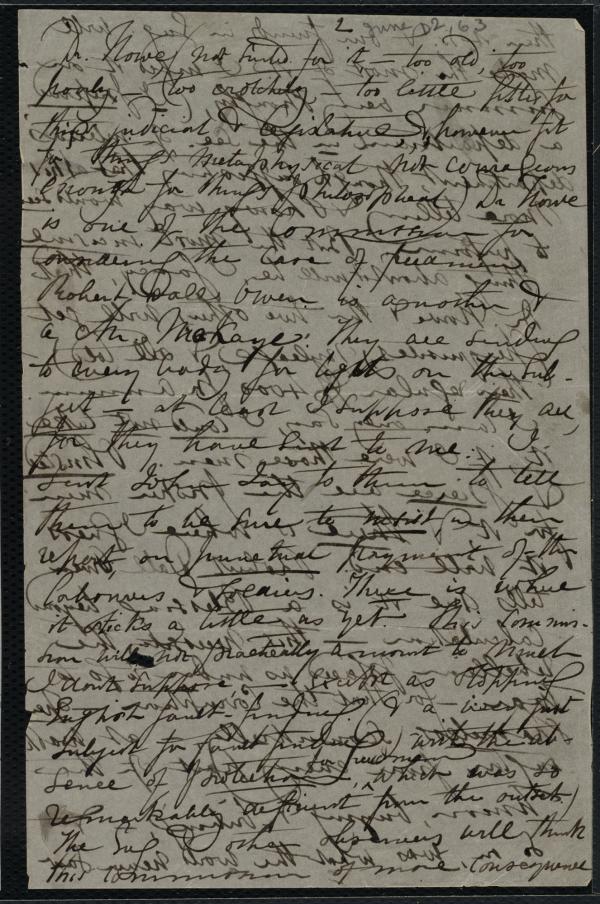 2 June 12, 63
Dr. Howe not suited for it — too old, too
poorly — too crotchety — too little fitted for
things judicial & legislative, & however fit
for things metaphysical not courageous
enough for things Philosophical) Dr Howe
is one of the Commission for
Considering the Case of freedmen
Robert Dale Owen is another &
a Mr. McKaye. They are sending
to every body for lights on the Sub-
ject — at least I suppose they are,
for they have sent to me. I
sent to them to tell
them to be sure to insist in their
report on punctual Payment of the
labourers & Soldiers. There is where
it sticks a little as yet. This Commis-
sion will not practically amount to much
I dont suppose, — except as stopping
English fault-finding. (& a very just
subject for fault finding) with the ab-
sence of protection freedmen, which was so
remarkably deficient from the outset)
The Eng. & other observers will think
this commission of more consequence